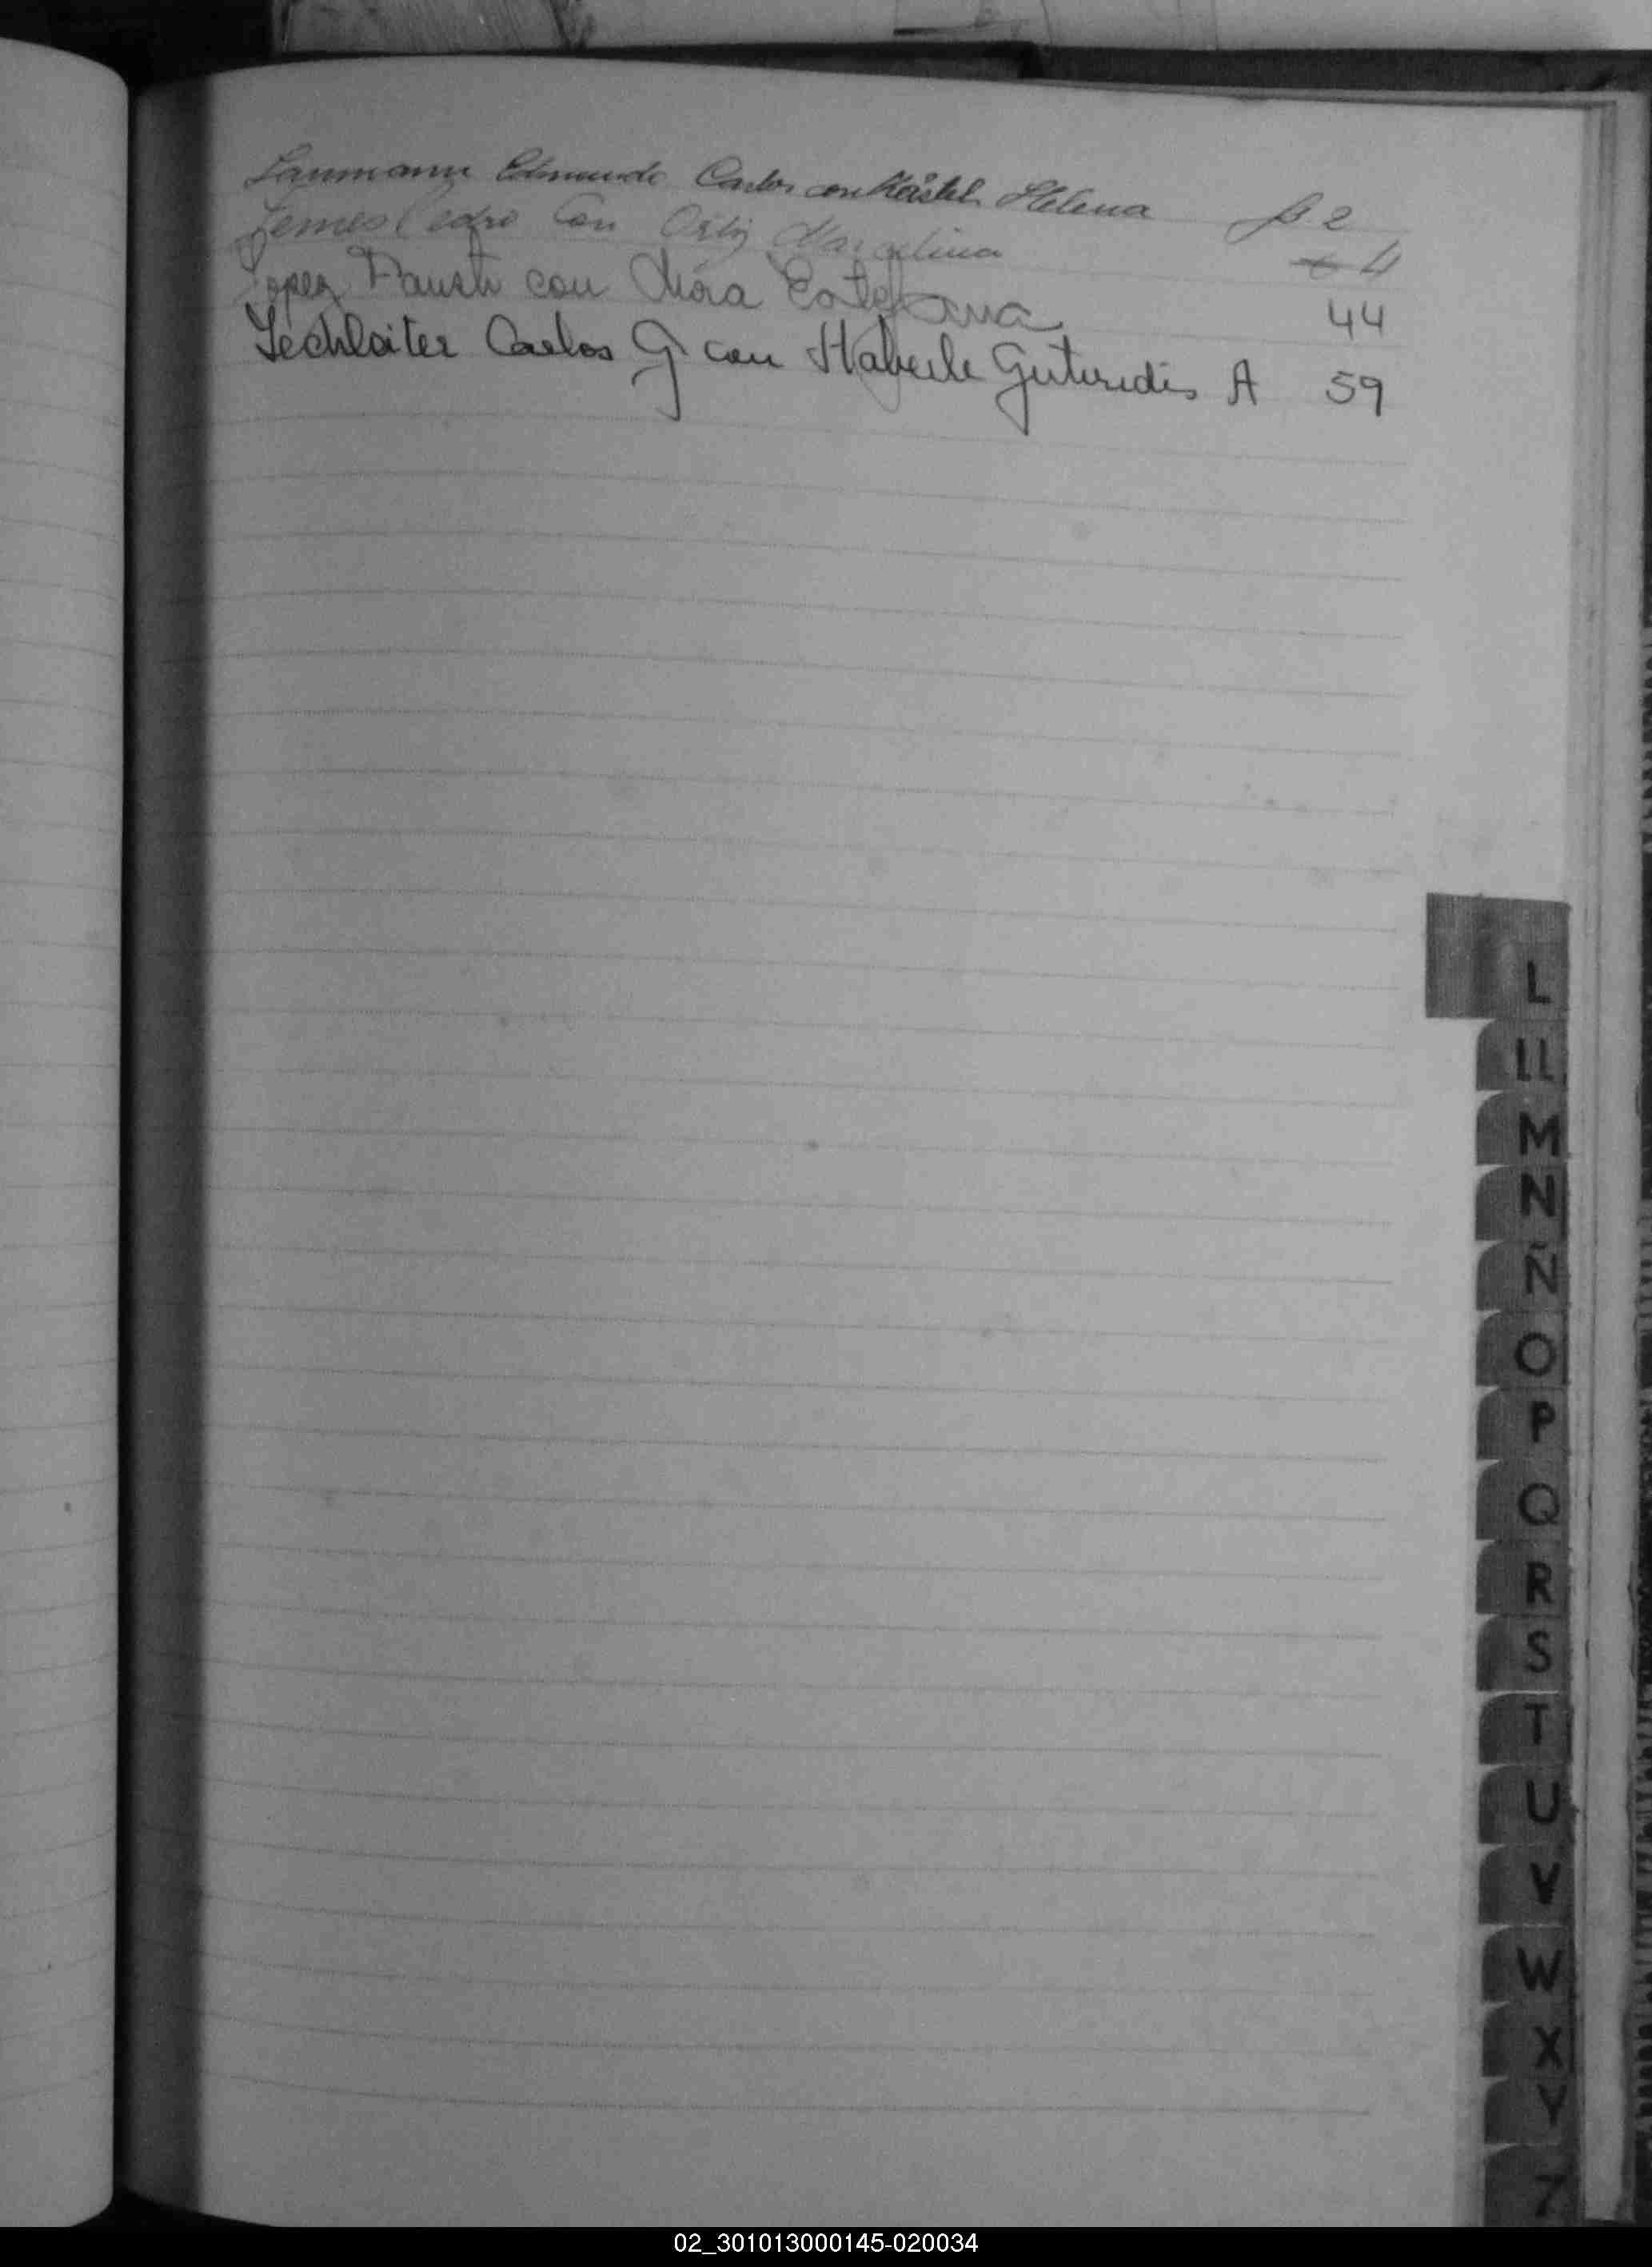 Laumann Edmundo Carlos con Kästel Helena f. 2
Lemes Pedro Con Ortiz Marcelina 4
Lopez Fausto con Mora Estefana 44
Lechleiter Carlos G con Haberle A 59
L
LL
M
N
Ñ
O
P
Q
R
S
T
U
V
W
X
Y
Z
02_301013000145-020034